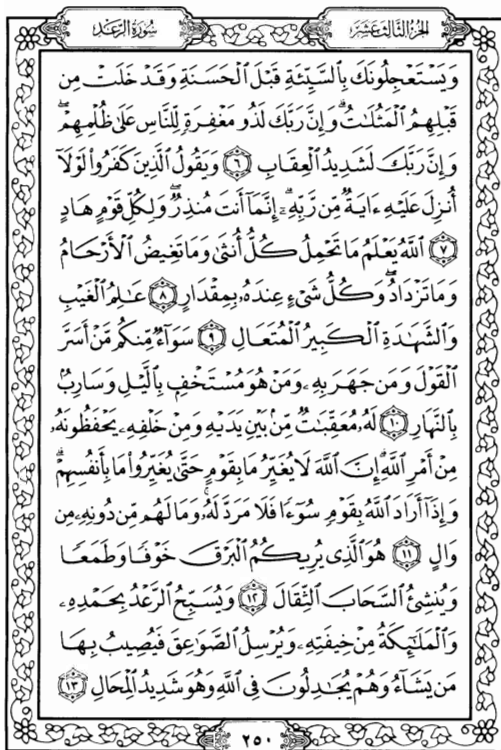 الجزء الثالث عشر
سورة الرعد
وَيَسْتَعْجِلُونَكَ بِالسَّيِّئَةِ قَبْلَ الْحَسَنَةِ وَقَدْ خَلَتْ مِن
قَبْلِهِمُ الْمَثُلَٰتُ ۗ وَإِنَّ رَبَّكَ لَذُو مَغْفِرَةٍ لِّلنَّاسِ عَلَىٰ ظُلْمِهِمْ ۖ
وَإِنَّ رَبَّكَ لَشَدِيدُ الْعِقَابِ ٦ وَيَقُولُ الَّذِينَ كَفَرُوا لَوْلَآ
أُنزِلَ عَلَيْهِ ءَايَةٌ مِّن رَّبِّهِۦٓ ۗ إِنَّمَآ أَنتَ مُنذِرٌ ۖ وَلِكُلِّ قَوْمٍ هَادٍ
٧ اللَّهُ يَعْلَمُ مَا تَحْمِلُ كُلُّ أُنثَىٰ وَمَا تَغِيضُ الْأَرْحَامُ
وَمَا تَزْدَادُ ۖ وَكُلُّ شَيْءٍ عِندَهُۥ بِمِقْدَارٍ ٨ عَٰلِمُ الْغَيْبِ
وَالشَّهَٰدَةِ الْكَبِيرُ الْمُتَعَالِ ٩ سَوَآءٌ مِّنكُم مَّنْ أَسَرَّ
الْقَوْلَ وَمَن جَهَرَ بِهِۦ وَمَنْ هُوَ مُسْتَخْفٍۭ بِالَّيْلِ وَسَارِبٌۢ
بِالنَّهَارِ ١٠ لَهُۥ مُعَقِّبَٰتٌ مِّنۢ بَيْنِ يَدَيْهِ وَمِنْ خَلْفِهِۦ يَحْفَظُونَهُۥ
مِنْ أَمْرِ اللَّهِ ۗ إِنَّ اللَّهَ لَا يُغَيِّرُ مَا بِقَوْمٍ حَتَّىٰ يُغَيِّرُوا مَا بِأَنفُسِهِمْ ۗ
وَإِذَآ أَرَادَ اللَّهُ بِقَوْمٍ سُوٓءًا فَلَا مَرَدَّ لَهُۥ ۚ وَمَا لَهُم مِّن دُونِهِۦ مِن
وَالٍ ١١ هُوَ الَّذِي يُرِيكُمُ الْبَرْقَ خَوْفًا وَطَمَعًا
وَيُنشِئُ السَّحَابَ الثِّقَالَ ١٢ وَيُسَبِّحُ الرَّعْدُ بِحَمْدِهِۦ
وَالْمَلَٰٓئِكَةُ مِنْ خِيفَتِهِۦ وَيُرْسِلُ الصَّوَٰعِقَ فَيُصِيبُ بِهَا
مَن يَشَآءُ وَهُمْ يُجَٰدِلُونَ فِي اللَّهِ وَهُوَ شَدِيدُ الْمِحَالِ ١٣
٢٥٠